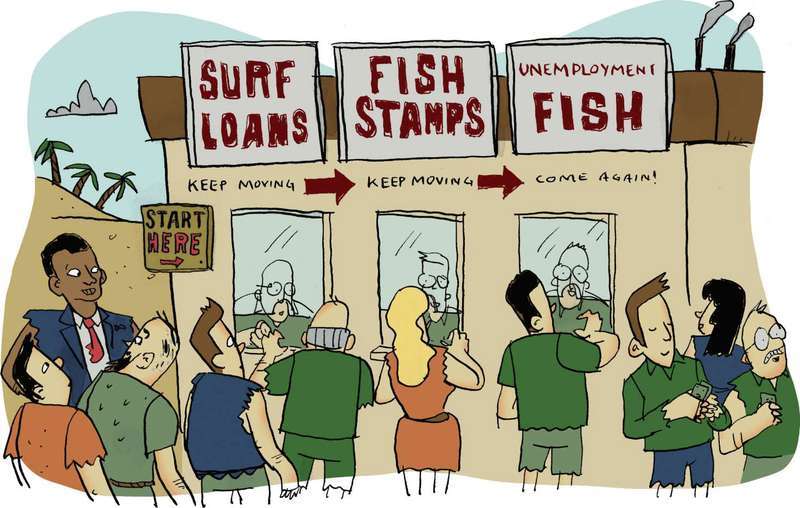 SURF
LOANS
FISH
STAMPS
UNEMPLOYMENT
FISH
KEEP MOVING
KEEP MOVING
COME AGAIN!
START
HERE